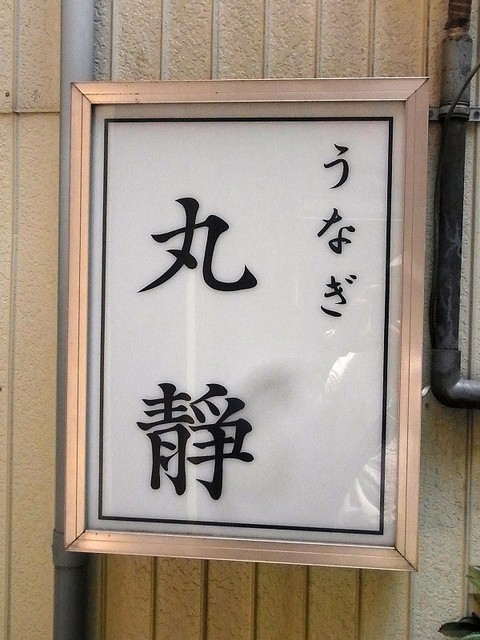 うなぎ
丸靜